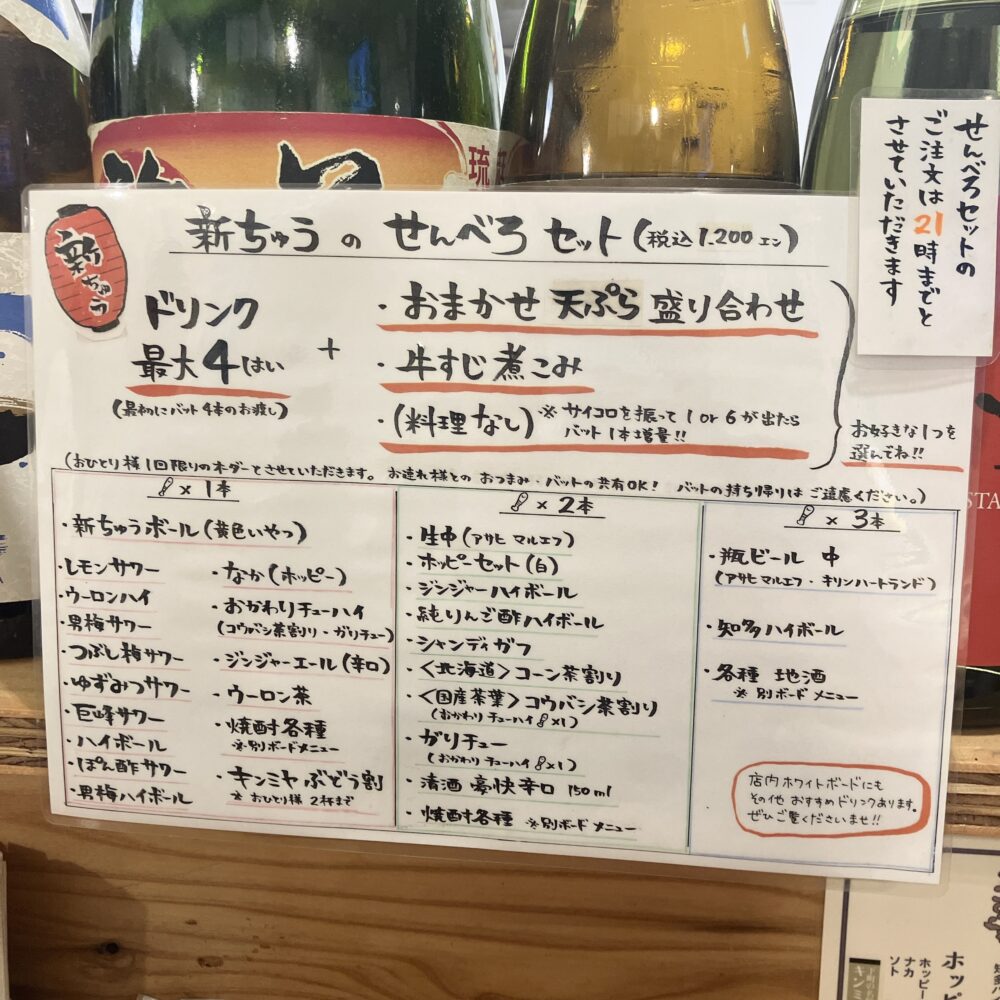 琉
せんべろセットの
ご注文は21時までと
させていただきます
新ちゅう
新ちゅうのせんべろセット(税込1.200エン)
ドリンク
最大4はい
(最初にバット4本のお渡し)
+
・おまかせ天ぷら盛り合わせ
・牛すじ煮こみ
・(料理なし)※サイコロを振って1or6が出たら
バット1本増量!!
お好きな1つを
選んでね!!
(おひとり様1回限りのオーダーとさせていただきます。 お連れ様とのおつまみ・バットの共有OK! バットの持ち帰りはご遠慮ください。)
×1本
・新ちゅうボール(黄色いやつ)
・レモンサワー
・ウーロンハイ
・男梅サワー
・つぶし梅サワー
・ゆずみつサワー
・巨峰サワー
・ハイボール
・ぽん酢サワー
・男梅ハイボール
・なか(ホッピー)
・おかわりチューハイ
(コウバシ茶割り・ガリチュー)
・ジンジャーエール(辛口)
・ウーロン茶
・焼酎各種
※別ボードメニュー
・キンミヤぶどう割
※おひとり様2杯まで
×2本
・生中(アサヒ マルエフ)
・ホッピーセット(白)
・ジンジャーハイボール
・純りんご酢ハイボール
・シャンディガフ
・〈北海道〉コーン茶割り
・〈国産茶葉〉コウバシ茶割り
(おかわりチューハイ×1)
・ガリチュー
(おかわりチューハイ×1)
・清酒 豪快辛口 150ml
・焼酎各種 ※別ボードメニュー
×3本
・瓶ビール 中
(アサヒマルエフ・キリンハートランド)
・知多ハイボール
・各種 地酒
※別ボードメニュー
店内ホワイトボードにも
その他おすすめドリンクあります。
ぜひご覧くださいませ!!
STA
ホッピ
ホッピー
ナカ
ソト